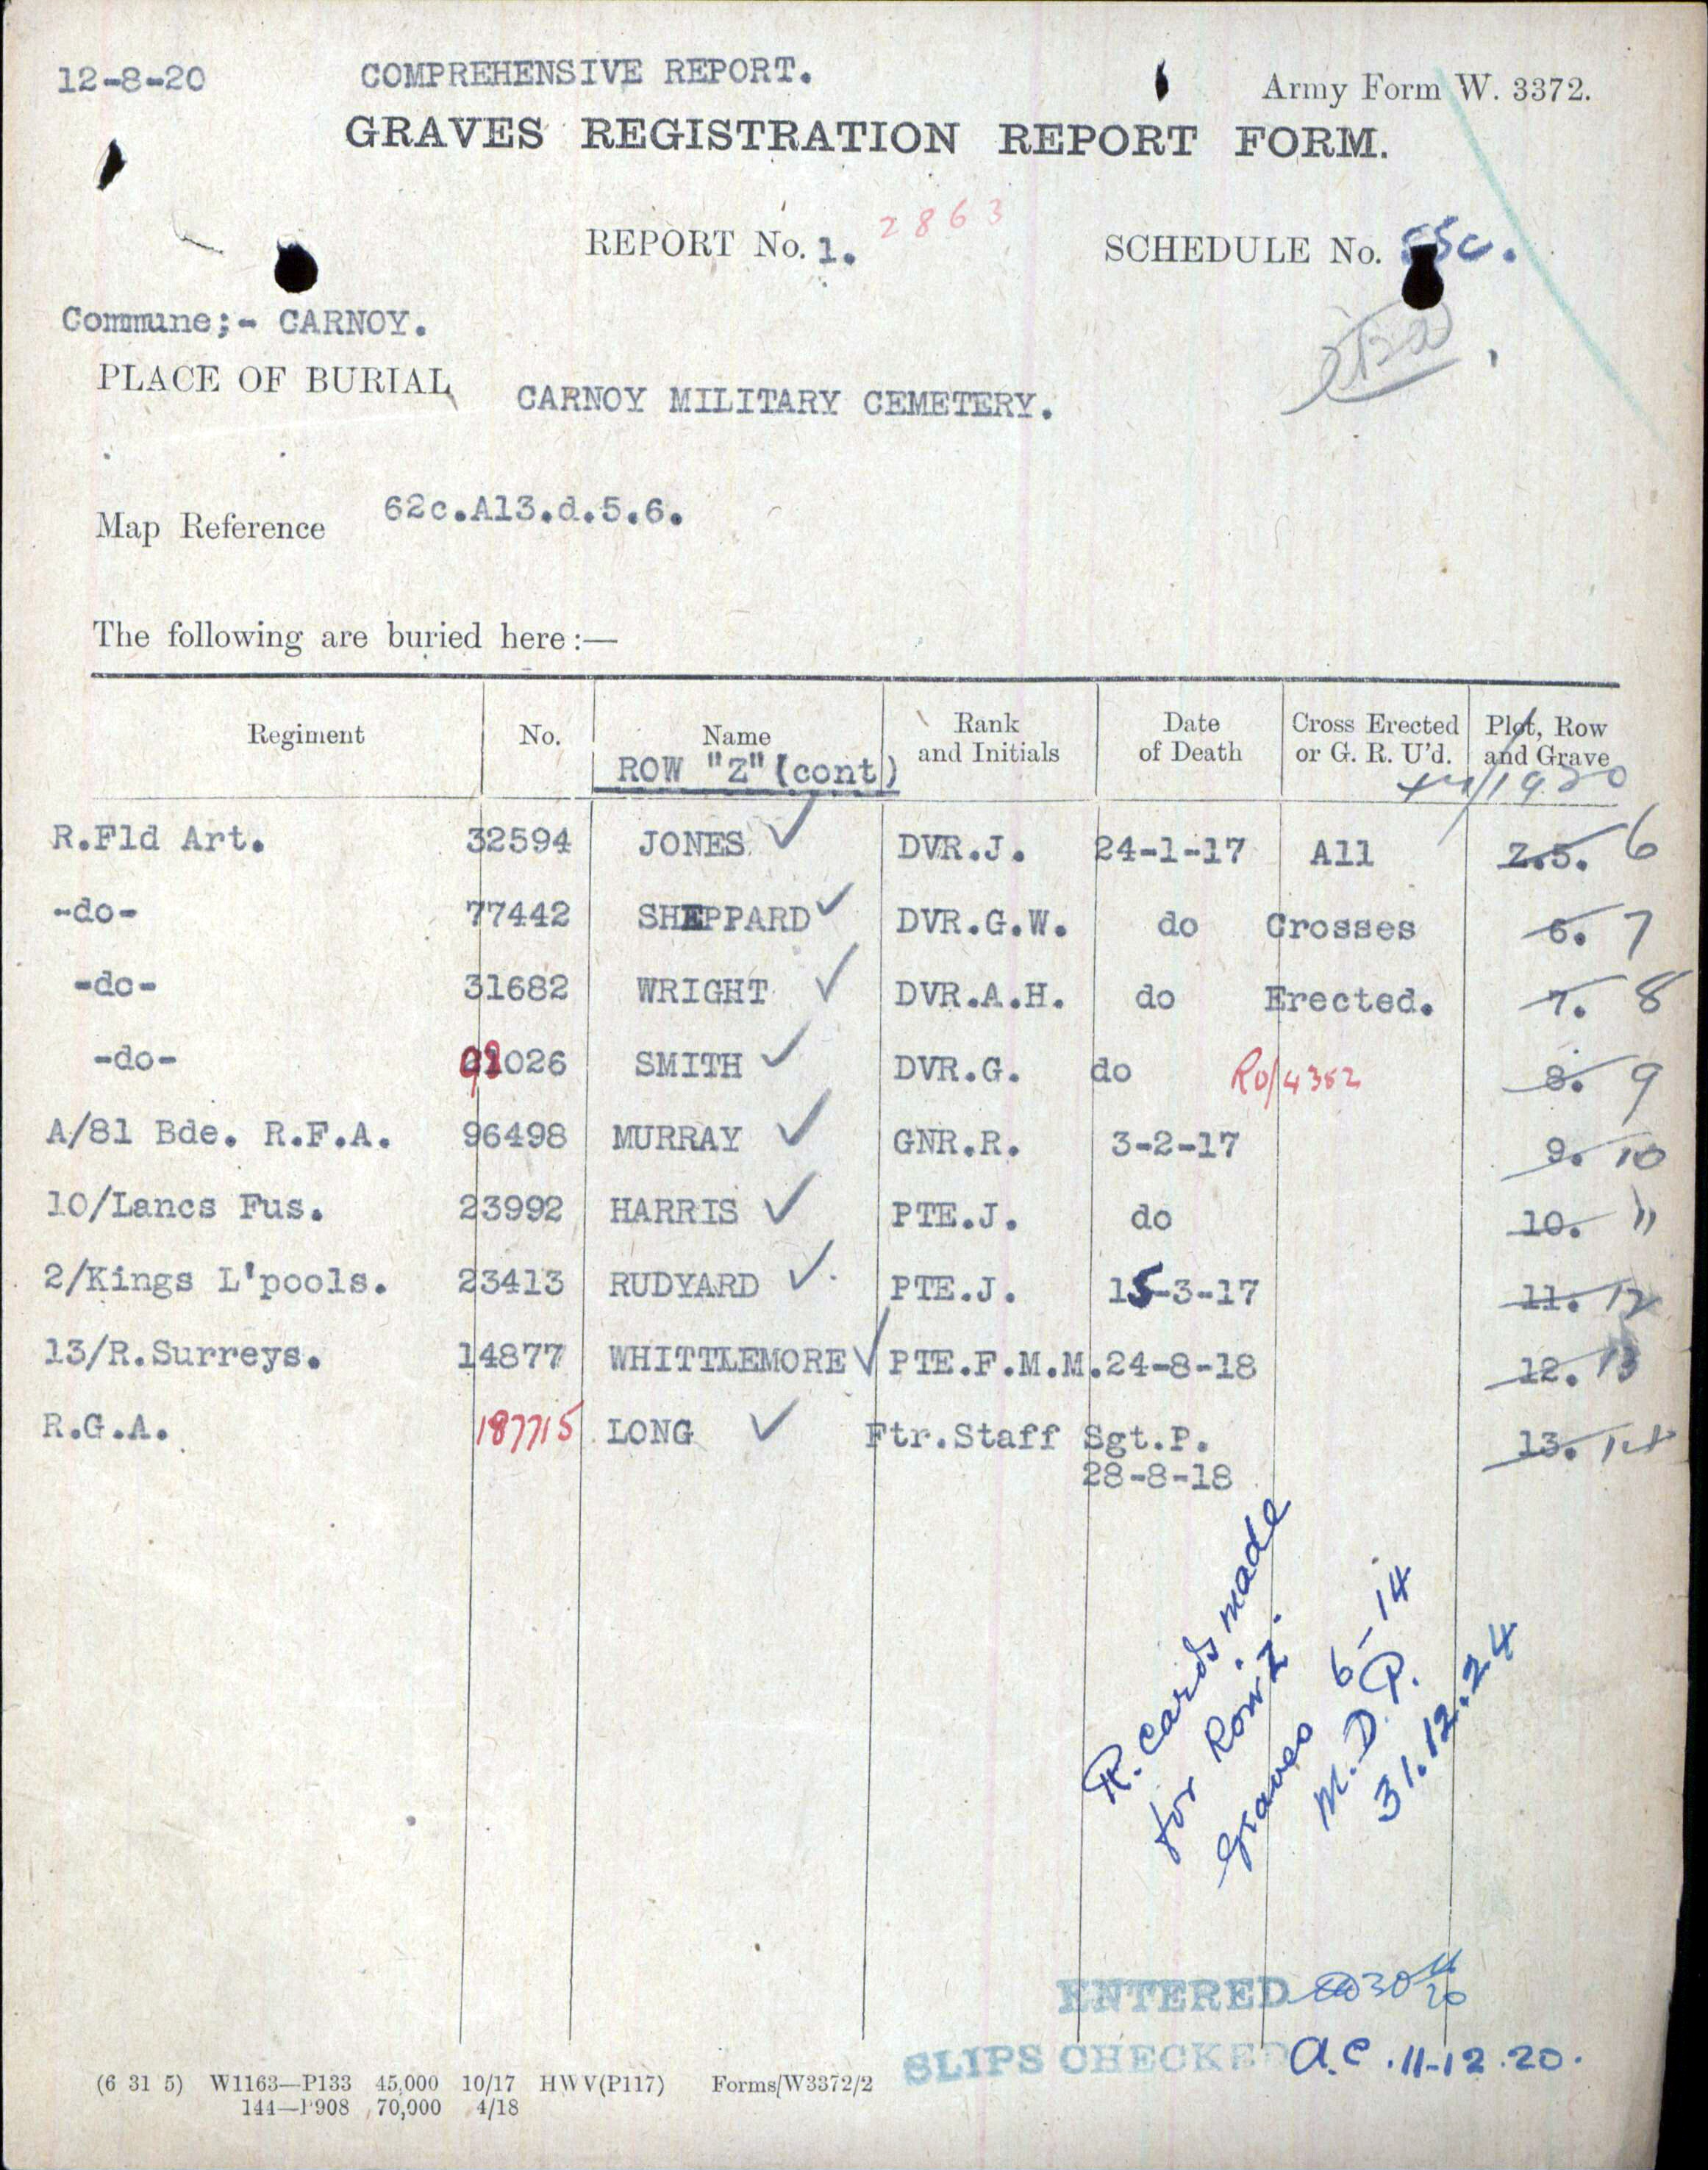 12-8-20 COMPREHENSIVE REPORT. Army Form W. 3372.
GRAVES REGISTRATION REPORT FORM.
REPORT No. 1. 2863 SCHEDULE No. 55C.
Commune;- CARNOY.
PLACE OF BURIAL CARNOY MILITARY CEMETERY.
Map Reference 62c.A13.d.5.6.
The following are buried here:—
Regiment No. Name Rank and Initials Date of Death Cross Erected or G. R. U'd. Plot, Row and Grave
ROW "Z" (cont)
/1920
R.Fld Art. 32594 JONES ✓ DVR.J. 24-1-17 All Z.5. 6
-do- 77442 SHEPPARD ✓ DVR.G.W. do Crosses 6. 7
-do- 31682 WRIGHT ✓ DVR.A.H. do Erected. 7. 8
-do- 026 SMITH ✓ DVR.G. do RO/4352 8. 9
A/81 Bde. R.F.A. 96498 MURRAY ✓ GNR.R. 3-2-17 9. 10
10/Lancs Fus. 23992 HARRIS ✓ PTE.J. do 10. 11
2/Kings L'pools. 23413 RUDYARD ✓. PTE.J. 15-3-17 11. 12
13/R.Surreys. 14877 WHITTLEMORE ✓ PTE.F.M.M. 24-8-18 12. 13
R.G.A. 187715 LONG ✓ Ftr.Staff Sgt.P. 13. 14
28-8-18
R. Cards made
for Row Z.
Graves 6-14
M.D.P.
31.12.24
ENTERED 30 11/20
SLIPS CHECKED a.c. 11-12.20.
(6 31 5) W1163—P133 45,000 10/17 HWV(P117) Forms/W3372/2
144—P908 70,000 4/18